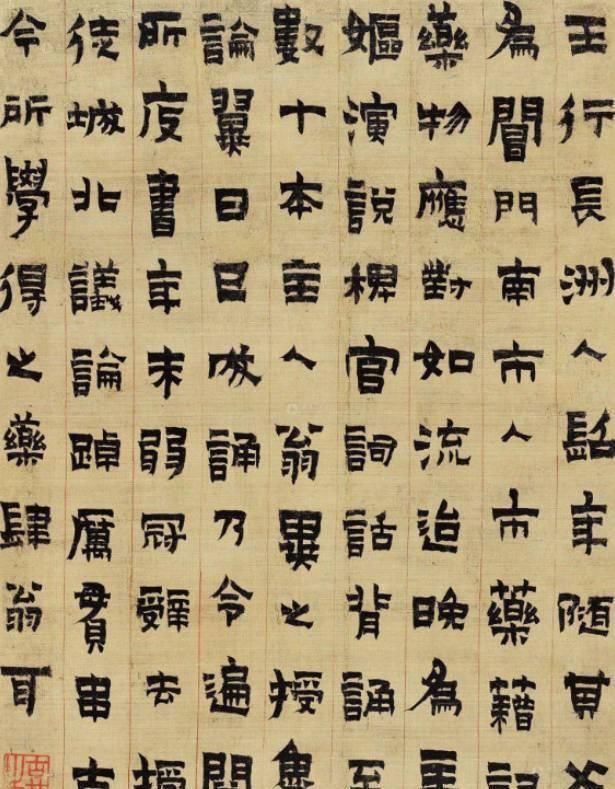 王行長洲人髫年隨其父
為閶門南市人市藥籍記
藥物應對如流迨晚為主
嫗演說稗官詞話背誦至
數十本主人翁異之授魯
論翼日已成誦乃令遍閱
所庋書年未弱冠辤去授
徒城北議論踔厲貫串古
今所學得之藥肆翁耳